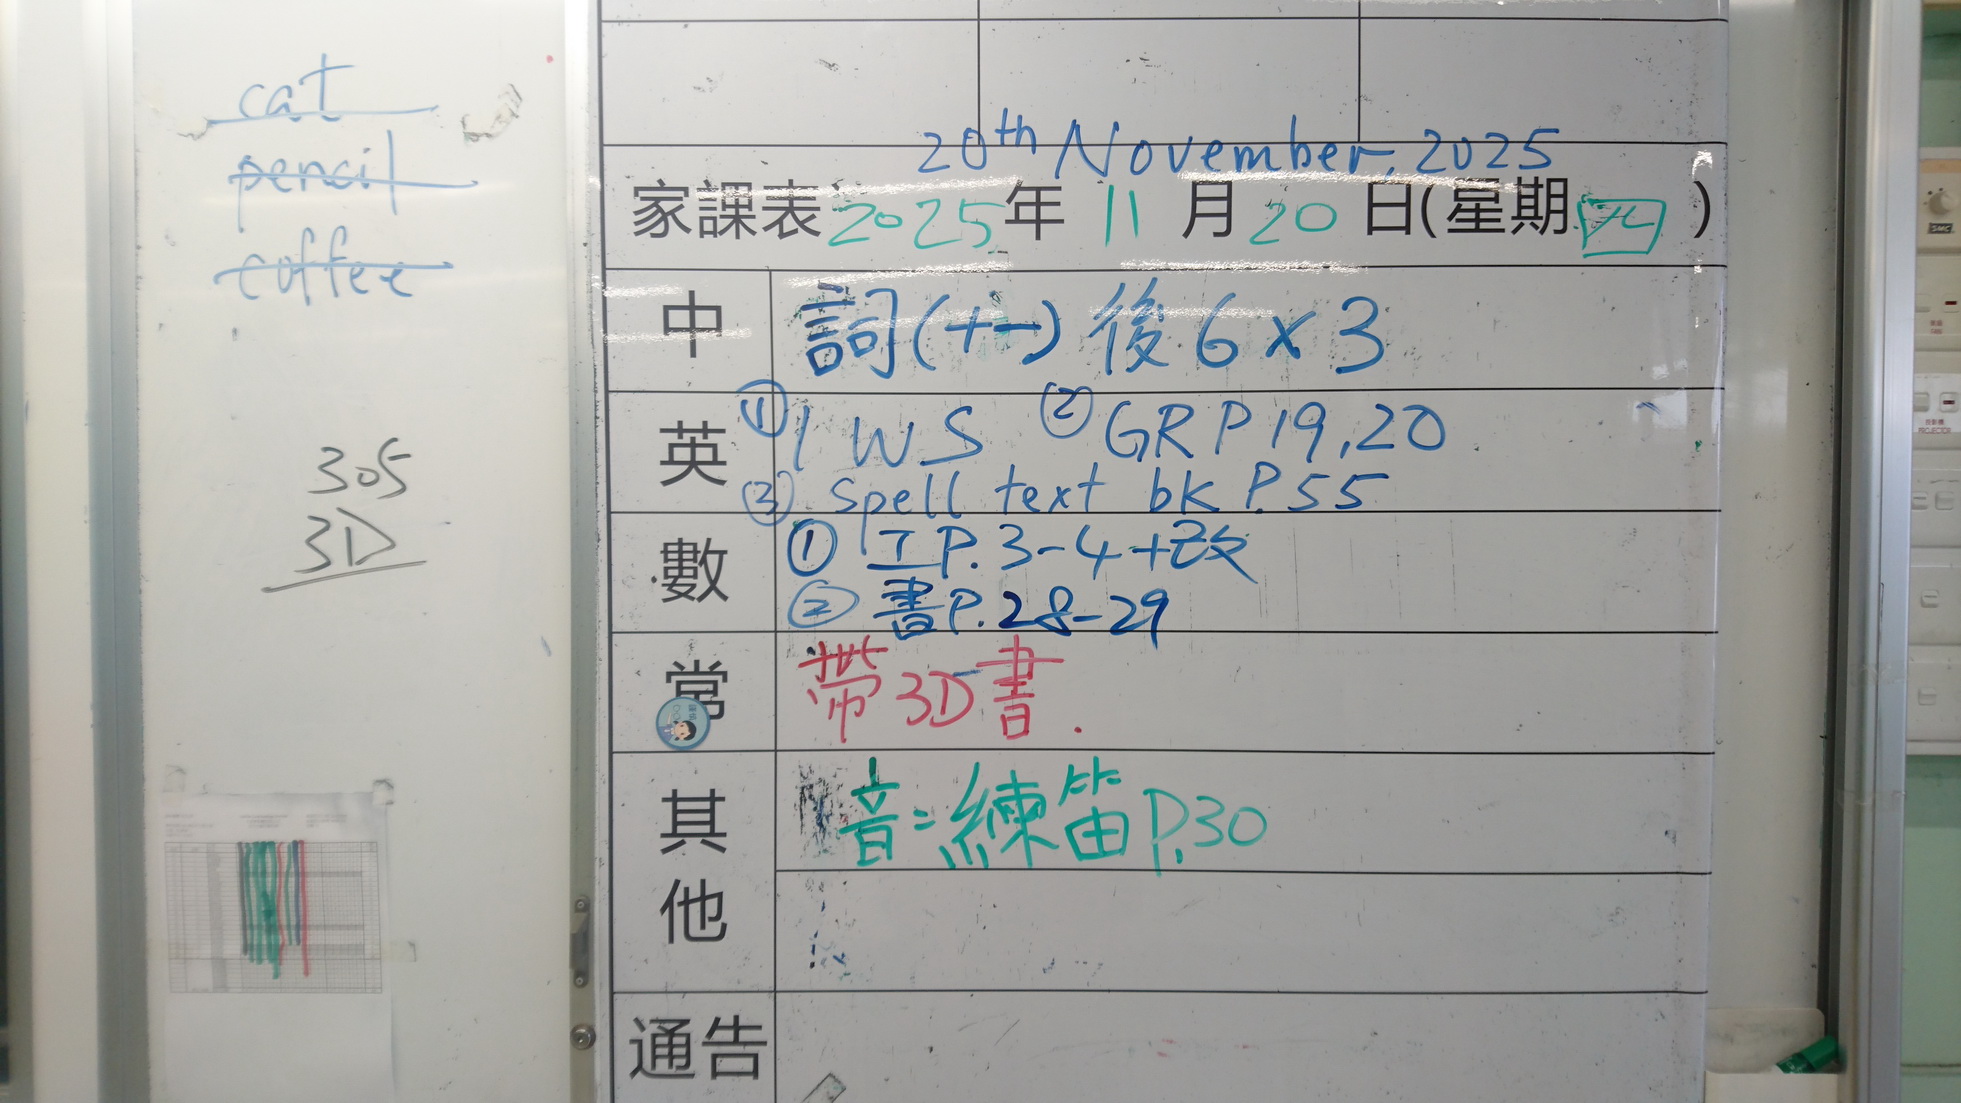 cat
pencil
coffee
305
3D
20th November, 2025
家課表 2025年 11 月 20 日(星期四)
中 詞(十一) 後 6 x 3
英 ① 1 WS ② GR P.19,20
③ spell text bk P.55
數 ① 工 P.3-4+改
② 書P.28-29
常 帶3D書.
其他 音:練笛 P.30
通告